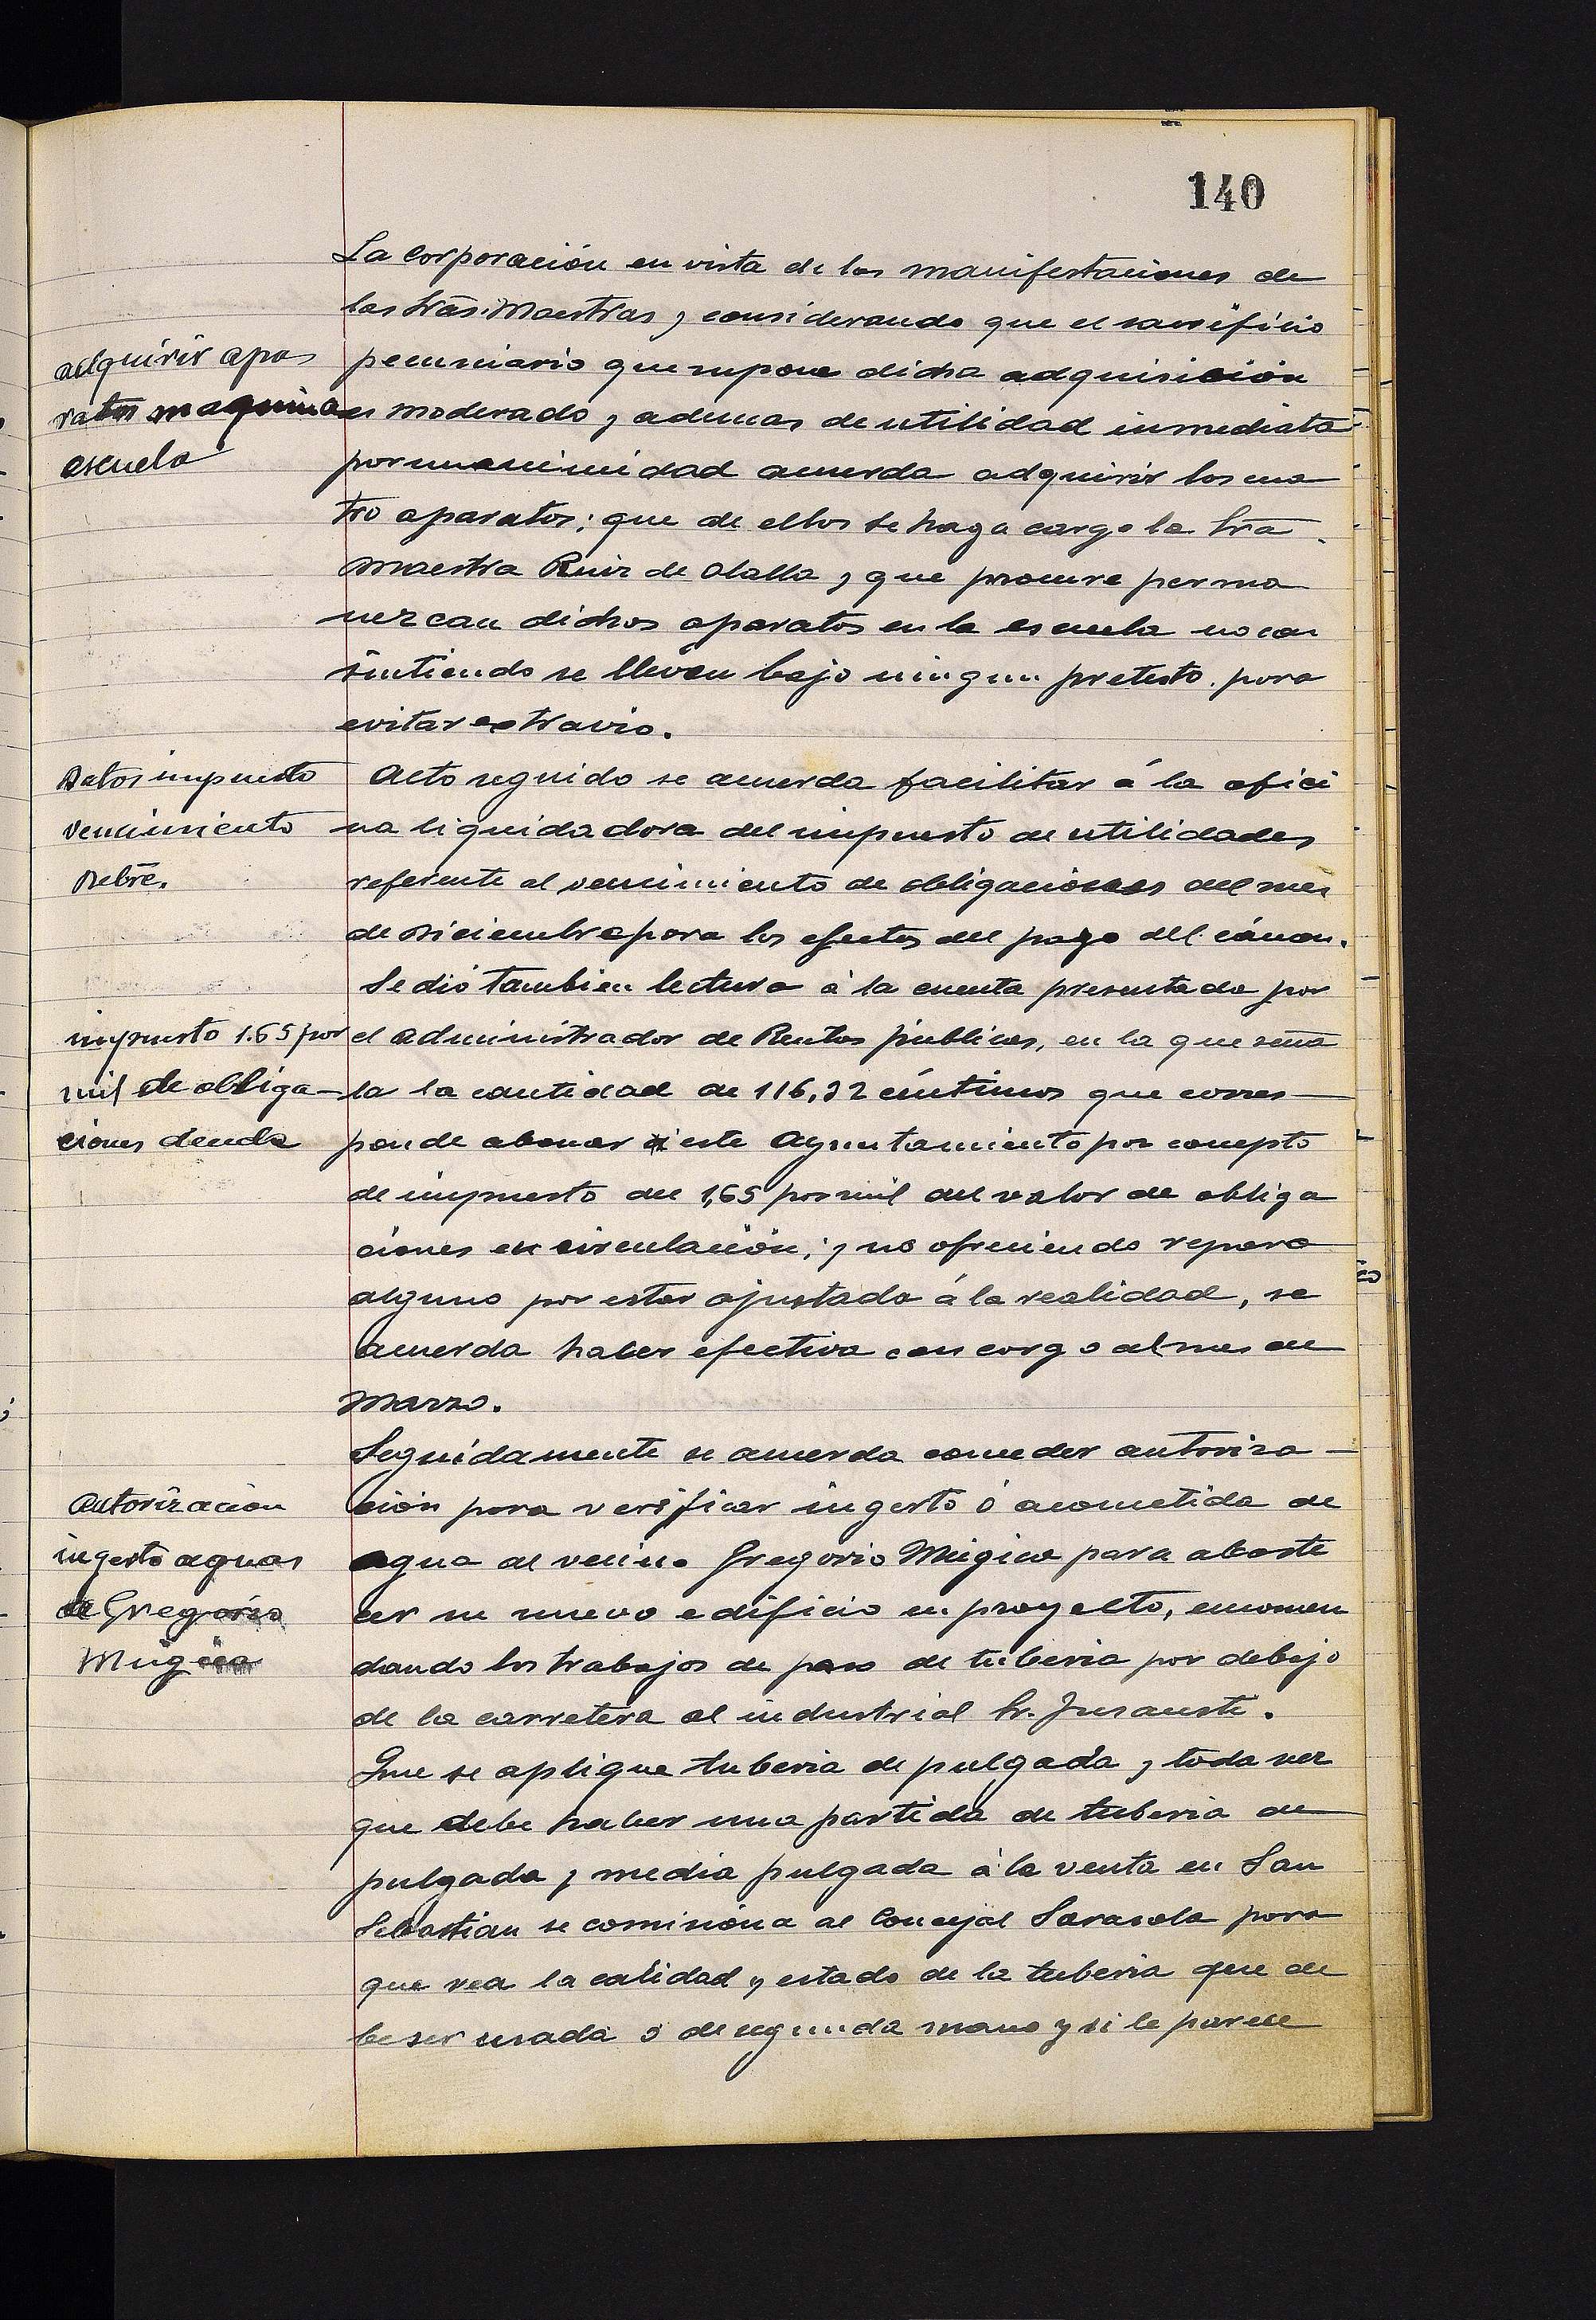 140
La Corporación en vista de las manifestaciones de
las Srās. Maestras y considerando que el sacrificio
adquirir apa
pecuniario que supone dicha adquisición
ratos maquina
es moderado y ademas de utilidad inmediata
escuela
por unanimidad acuerda adquirir los cua
tro aparatos; que de ellos se haga cargo la Srā.
Maestra Ruiz de Olalla y que procure perma
nezcan dichos aparatos en la escuela no con
sintiendo se lleven bajo ningun pretesto para
evitar extravio.
Datos impuesto
Acto seguido se acuerda facilitar á la ofici
vencimiento
na liquidadora del impuesto de utilidades
Debrē.
referente al vencimiento de obligaciones del mes
de Diciembre para los efectos del pago del cánon.
Se dió tambien lectura á la cuenta presentada por
impuesto 1.65 por
el administrador de Rentas públicas, en la que seña
mil de obliga-
la la cantidad de 116,32 céntimos que corres-
ciones deuda
ponde abonar á este Ayuntamiento por concepto
de impuesto del 1,65 por mil del valor de obliga
ciones en circulación; y no ofreciendo reparo
alguno por estar ajustada á la realidad, se
acuerda haber efectiva con cargo al mes de
Marzo.
Seguidamente se acuerda conceder autoriza-
Autorización
ción para verificar ingerto ó acometida de
ingerto aguas
agua al vecino Gregorio Múgica para abaste
de Gregorio
cer su nuevo edificio en proyecto, encomen
Múgica
dando los trabajos de paso de tuberia por debajo
de la carretera al industrial Sr.
Que se aplique tuberia de pulgada y toda vez
que debe haber una partida de tuberia de
pulgada y media pulgada á la venta en San
Sebastian se comisiona al Concejal Sarasola para
que vea la calidad y estado de la tuberia que de
be ser usada ó de segunda mano y si le parece